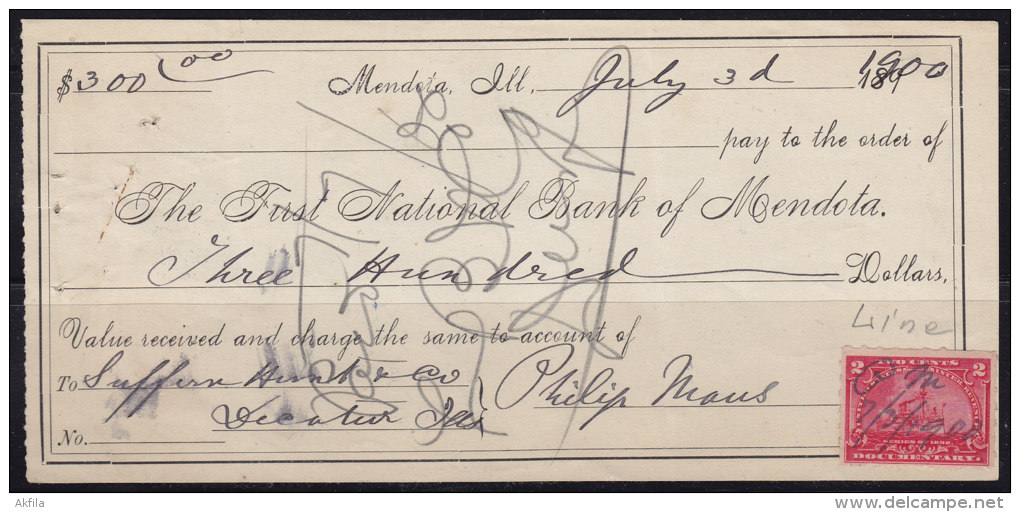 $300 00 Mendota, Ill., July 3d 1900
pay to the order of
The First National Bank of Mendota.
Three Hundred Dollars,
Value received and charge the same to account of
To Suffern Hunt & Co
Decatur Ills
Philip Maus
No.
TWO CENTS
2 2
7/3/1900
SERIES OF 1898
DOCUMENTARY
Akfila
delcampe.net